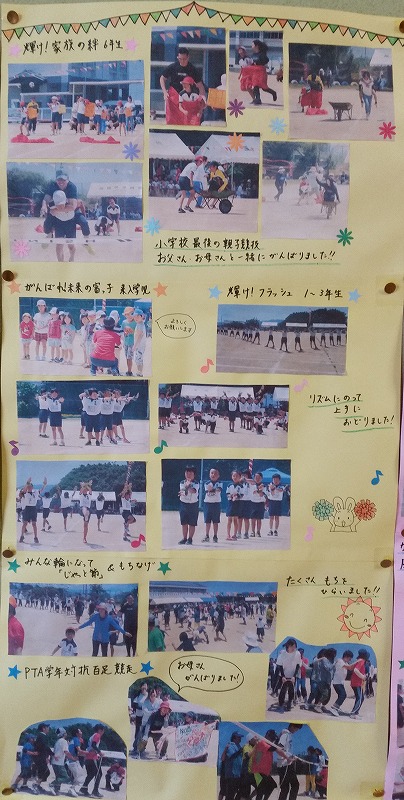 輝け!家族の絆 6年生
小学校最後の親子競技
お父さん・お母さんと一緒にがんばりました!!
がんばれ!未来の富っ子 未入学児
よろしく
お願いします
輝け!フラッシュ 1~3年生
リズムにのって
上手に
おどりました!
みんな輪になって
「じゃんと節」 & もちなげ
たくさん もちを
ひろいました!!
PTA学年対抗百足競走
お母さん
がんばりました!